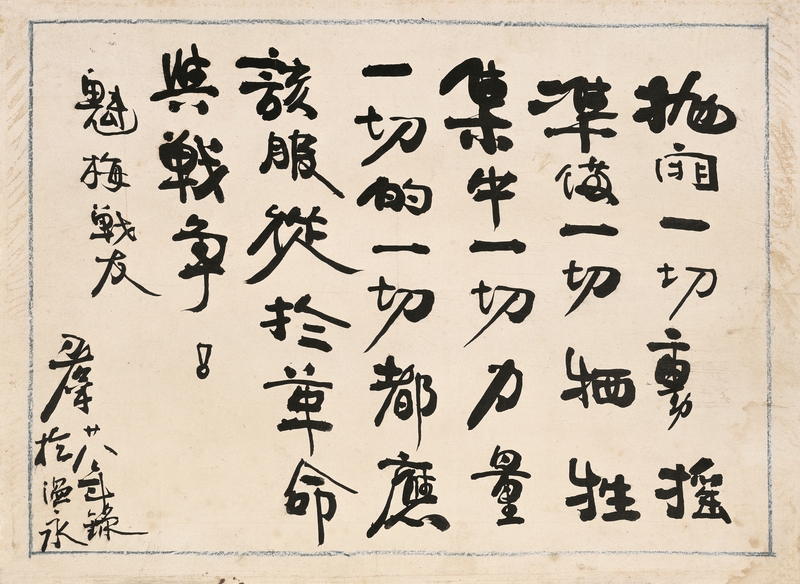 抛開一切動搖
準備一切牺牲
集中一切力量
一切的一切都應
該服從於革命
與戰争！
魁梅戰友
羣廿八年錄
於温永